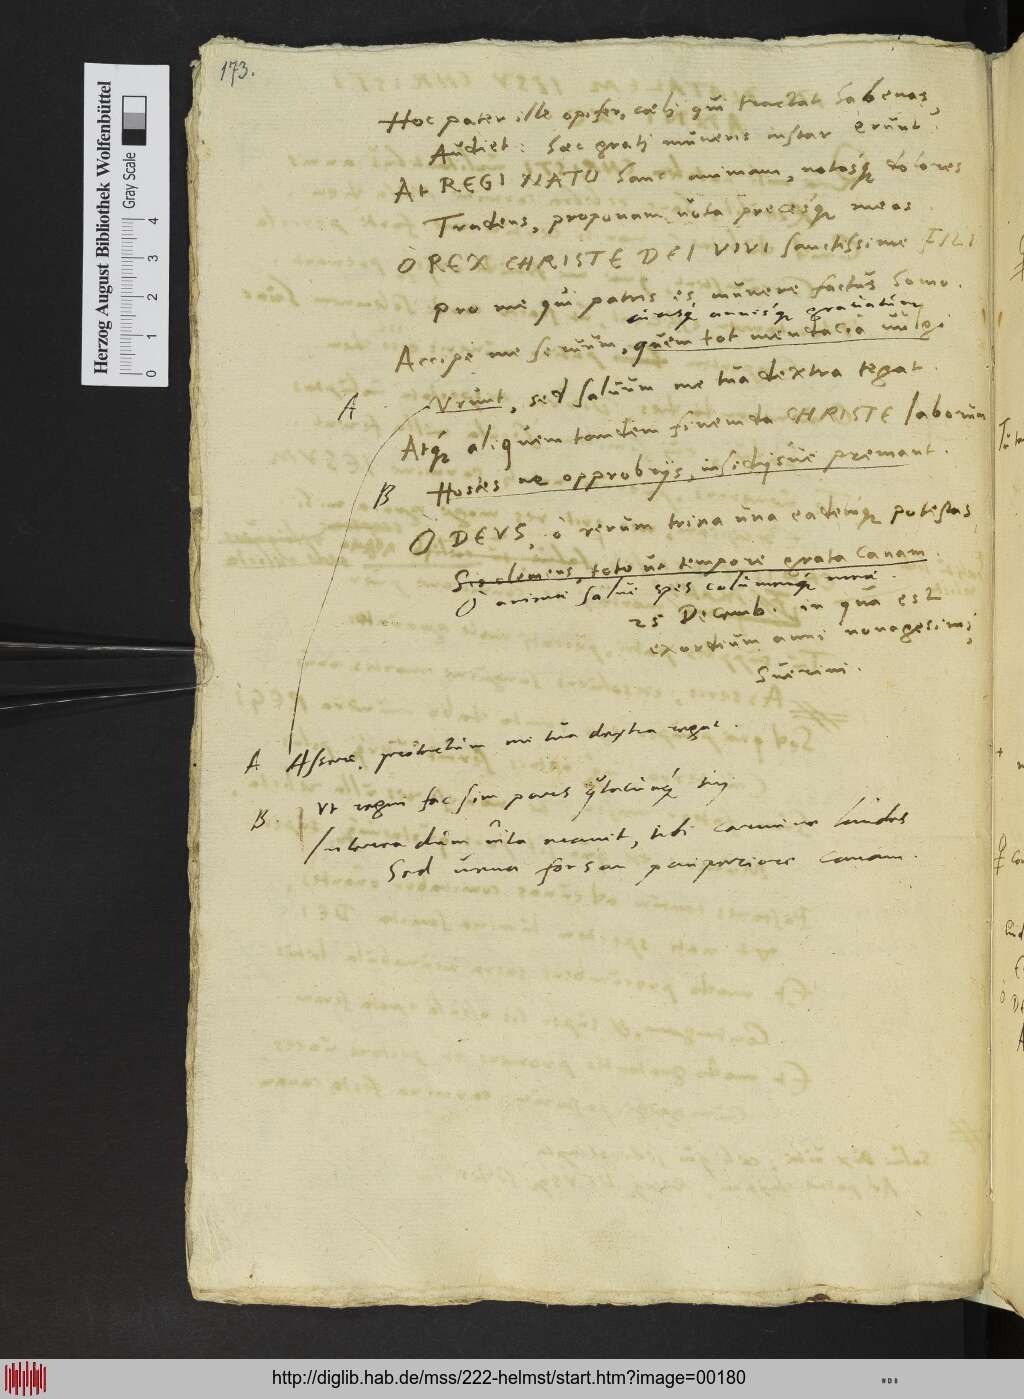 173.
Hoc pater ille opifer, cœli qui tractat habenas,
Audiet: hæc grati muneris instar erunt.
At REGI NATO hanc animam, notosq́ dolores
Tradens, proponam vota precesq́ meas.
Ò REX CHRISTE DEI VIVI sanctissime FILI
pro me qui patris es munere factus homo.
curisq́ annisq́ gravatum
Accipe me servum, quem tot mendacia vulgi
A Vrunt, sed salvum me tua dextra tegat.
Atq́ aliquem tandem finem da CHRISTE laborum
B Hostes ne opprobrijs, insidijsve premant.
Ò DEVS, ò rerum trina una eademq́ potestas
Sis clemens, toto ut tempore grata canam.
Ò animæ salve spes columenq́ meæ.
25 Decemb. in qua est
exordium anni nonagesimi
Suerini.
A Assere, protectum me tua dextra regat.
B. Vt regni fac sim pars tui
Interea dum vita manet, tibi carmine laudes
Sed vena forsan pauperiore canam.
Herzog August Bibliothek Wolfenbüttel
Gray Scale
0 1 2 3 4
http://diglib.hab.de/mss/222-helmst/start.htm?image=00180